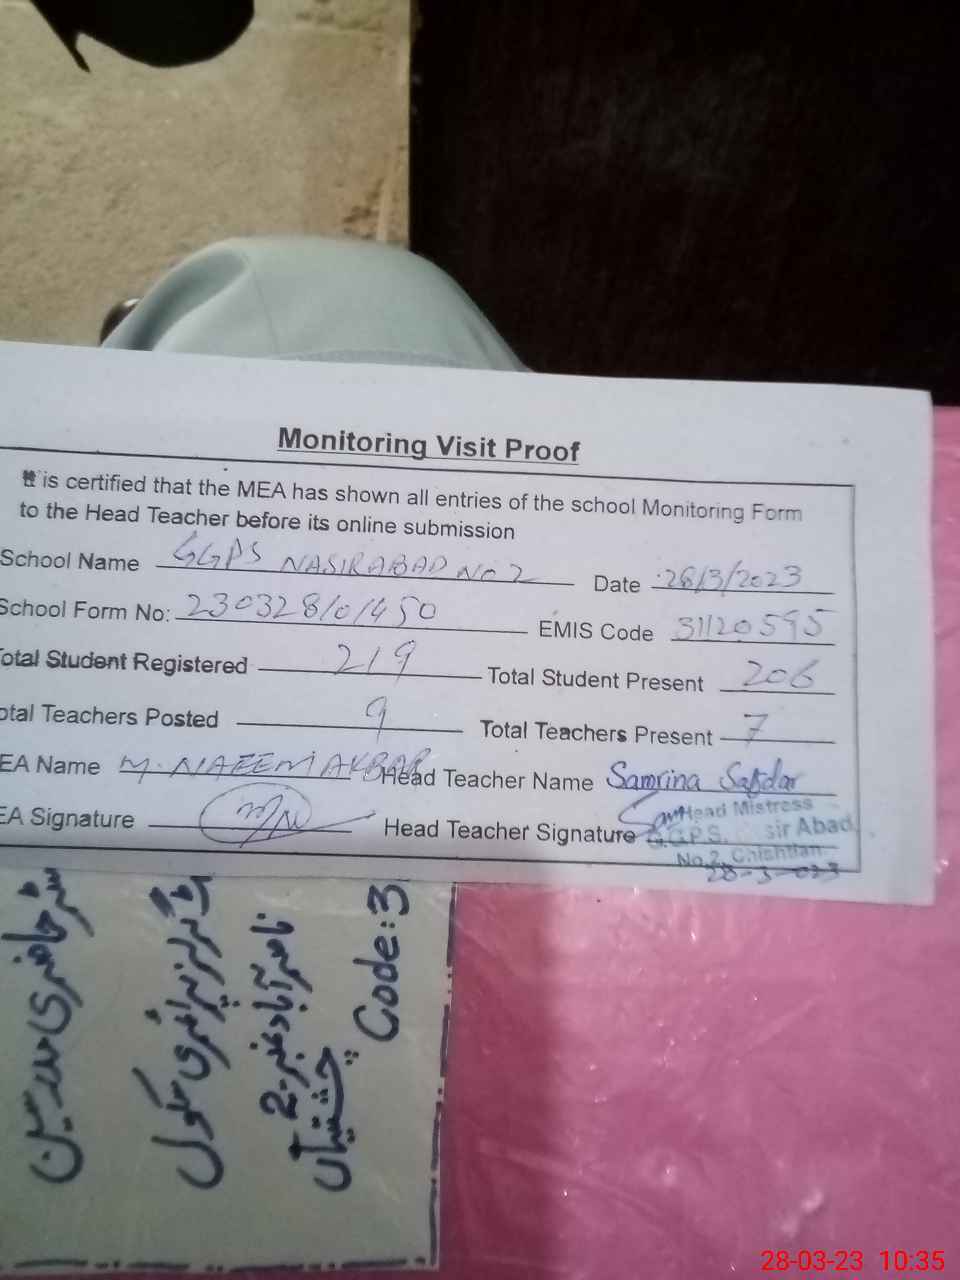 Monitoring Visit Proof
It is certified that the MEA has shown all entries of the school Monitoring Form
to the Head Teacher before its online submission
School Name GGPS NASIRABAD No 2 Date :28/3/2023
School Form No: 230328101450 EMIS Code 31120595
Total Student Registered 219 Total Student Present 206
otal Teachers Posted 9 Total Teachers Present 7
EA Name M. NAEEM AKBAR Head Teacher Name Samrina Safdar
EA Signature Head Teacher Signature
Head Mistress
G.G.P.S. sir Abad
No.2, Chishtian
28-3-023
رجسٹر حاضری مدرسین
گورنمنٹ گرلز پرائمری سکول
ناصر آباد نمبر-2
چشتیاں
Code:3
28-03-23 10:35